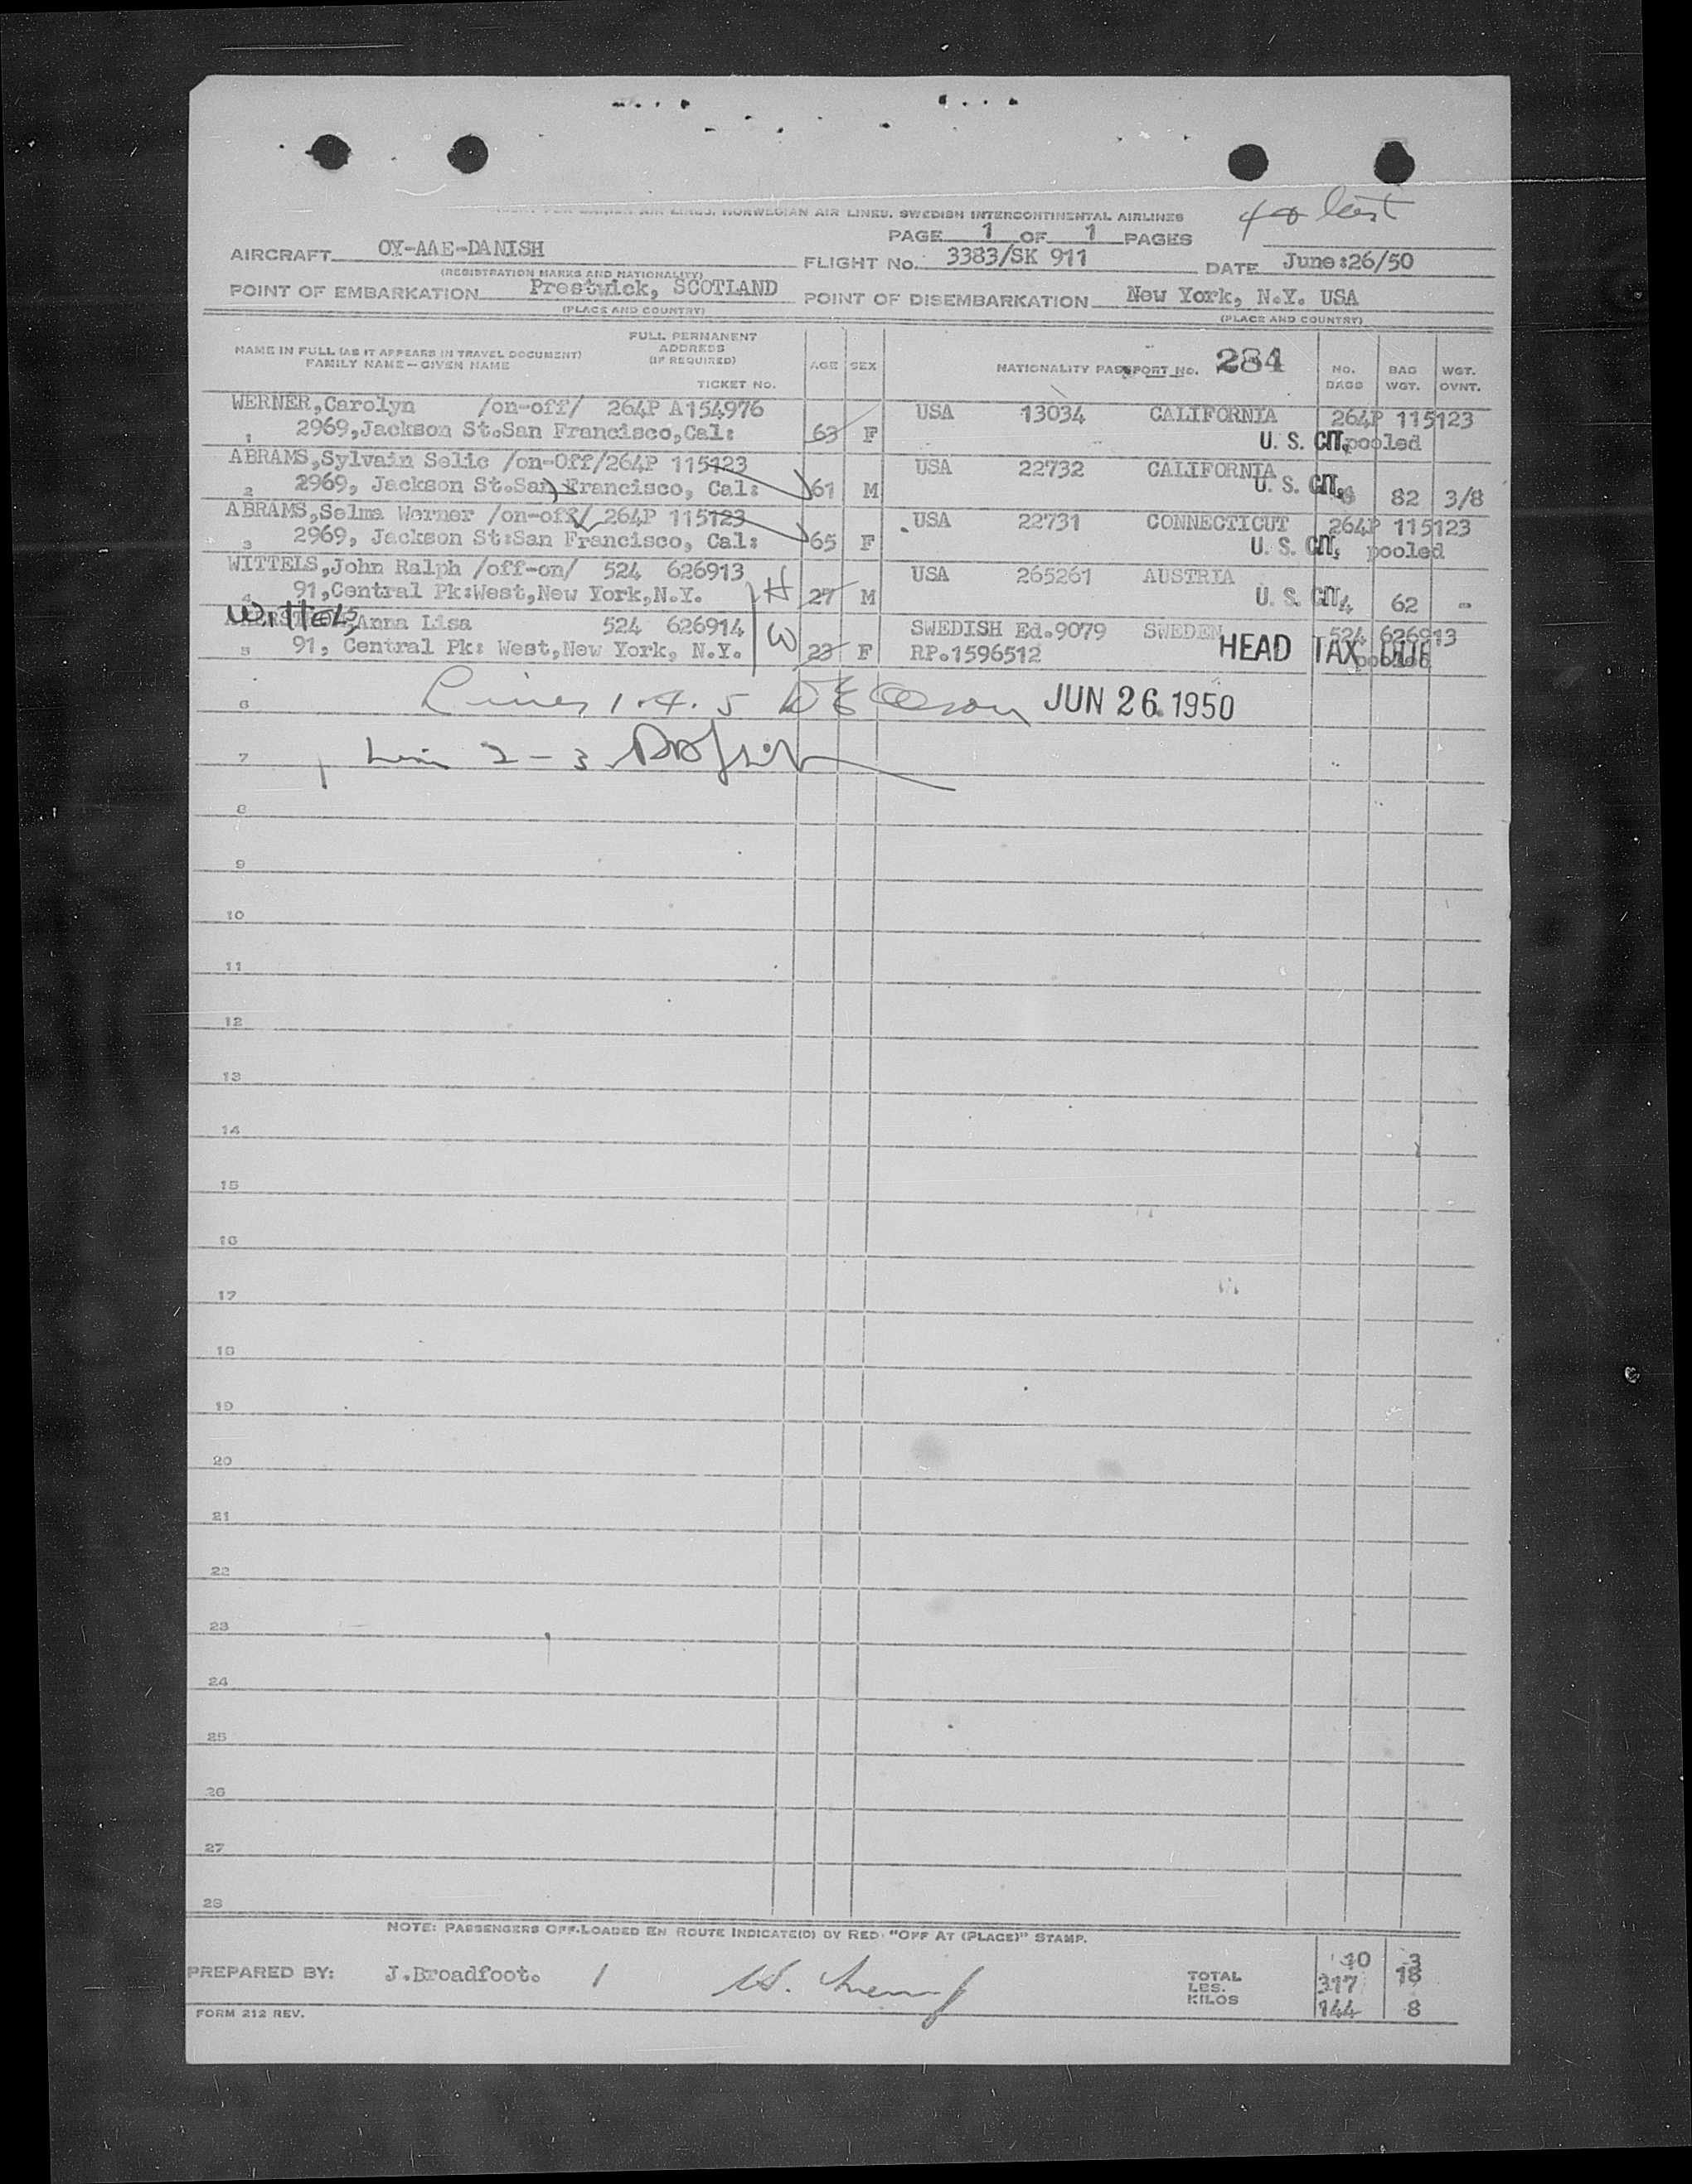 AIR LINES, NORWEGIAN AIR LINES, SWEDISH INTERCONTINENTAL AIRLINES
PAGE 1 OF 1 PAGES
AIRCRAFT OY-AAE-DANISH FLIGHT No. 3383/SK 911 DATE June:26/50
(REGISTRATION MARKS AND NATIONALITY)
POINT OF EMBARKATION Prestwick, SCOTLAND POINT OF DISEMBARKATION New York, N.Y. USA
(PLACE AND COUNTRY) (PLACE AND COUNTRY)
NAME IN FULL (AS IT APPEARS IN TRAVEL DOCUMENT) FAMILY NAME—GIVEN NAME FULL PERMANENT ADDRESS (IF REQUIRED) TICKET NO. AGE SEX NATIONALITY PASSPORT NO. 284 NO. BAGS BAG WGT. WGT. OVNT.
WERNER,Carolyn /on-off/ 264P A154976 USA 13034 CALIFORNIA 264P 115123
1 2969,Jackson St.San Francisco,Cal: 63 F U. S. CIT. pooled
ABRAMS,Sylvain Selic /on-Off/264P 115123 USA 22732 CALIFORNIA
2 2969, Jackson St.San Francisco, Cal: 61 M U. S. CIT. 82 3/8
ABRAMS,Selma Werner /on-off/ 264P 115123 USA 22731 CONNECTICUT 264P 115123
3 2969, Jackson St:San Francisco, Cal: 65 F U. S. CIT. pooled
WITTELS,John Ralph /off-on/ 524 626913 USA 265261 AUSTRIA
4 91,Central Pk:West,New York,N.Y. H 27 M U. S. CIT. 4 62 -
WITTELS, Anna Lisa 524 626914 SWEDISH Ed.9079 SWEDEN 524 626913
5 91, Central Pk: West,New York, N.Y. W 23 F RP.1596512 HEAD TAX pooled
6 Lines 1.4.5 JUN 26 1950
7 Lin 2-3
8
9
10
11
12
13
14
15
16
17
18
19
20
21
22
23
24
25
26
27
28
NOTE: PASSENGERS OFF-LOADED EN ROUTE INDICATE(D) BY RED "OFF AT (PLACE)" STAMP.
PREPARED BY: J.Broadfoot. TOTAL 10
LBS. 317
KILOS 144 8
FORM 212 REV.